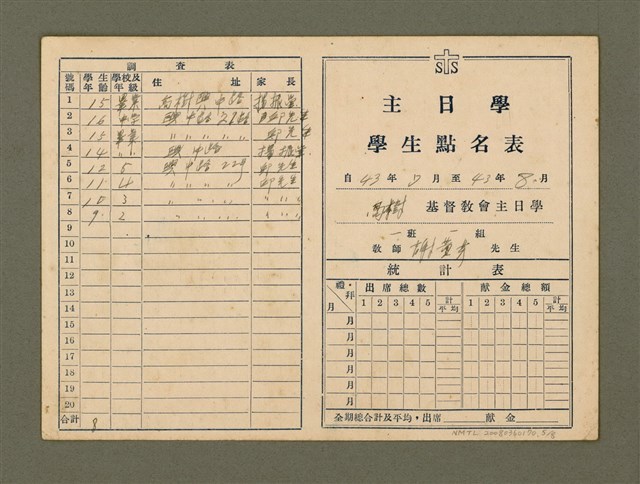 調查表
號碼 學生年齡 學校及年級 住址 家長
1 15 畢業 高樹興中路
2 16 中学 興中路
3 15 畢業 〃 〃 〃 〃 邱先生
4 14 〃 〃 興中路
5 12 5 興中路22号 邱先生
6 11 4 〃 〃 〃 〃 邱先生
7 10 3 〃 〃 〃 〃 〃 〃 〃
8 9 2 〃 〃 〃 〃 〃 〃 〃
9
10
11
12
13
14
15
16
17
18
19
20
合計 8
S S
主日學
學生點名表
自43年 月至43年8月
高樹 基督教會主日學
一班 組
教師 先生
統計表
禮拜 月 出席總數 献金總額
1 2 3 4 5 計平均 1 2 3 4 5 計平均
月
月
月
月
月
月
全期總合計及平均,出席 献金